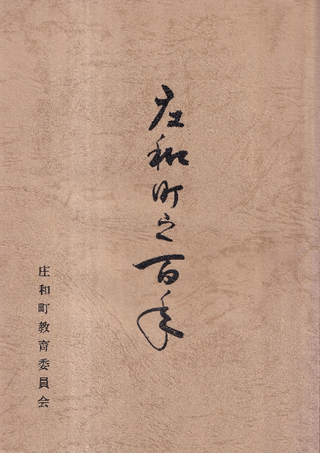 庄和町之百年
庄和町教育委員会